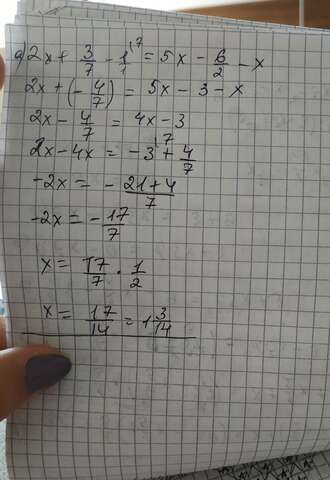 a) 2x + 3/7 - 1/1 ⁽⁷ = 5x - 6/2 - x
2x + (-4/7) = 5x - 3 - x
2x - 4/7 = 4x - 3
2x - 4x = -3 ⁽⁷ + 4/7
-2x = - 21+4/7
-2x = - 17/7
x = 17/7 · 1/2
x = 17/14 = 1 3/14